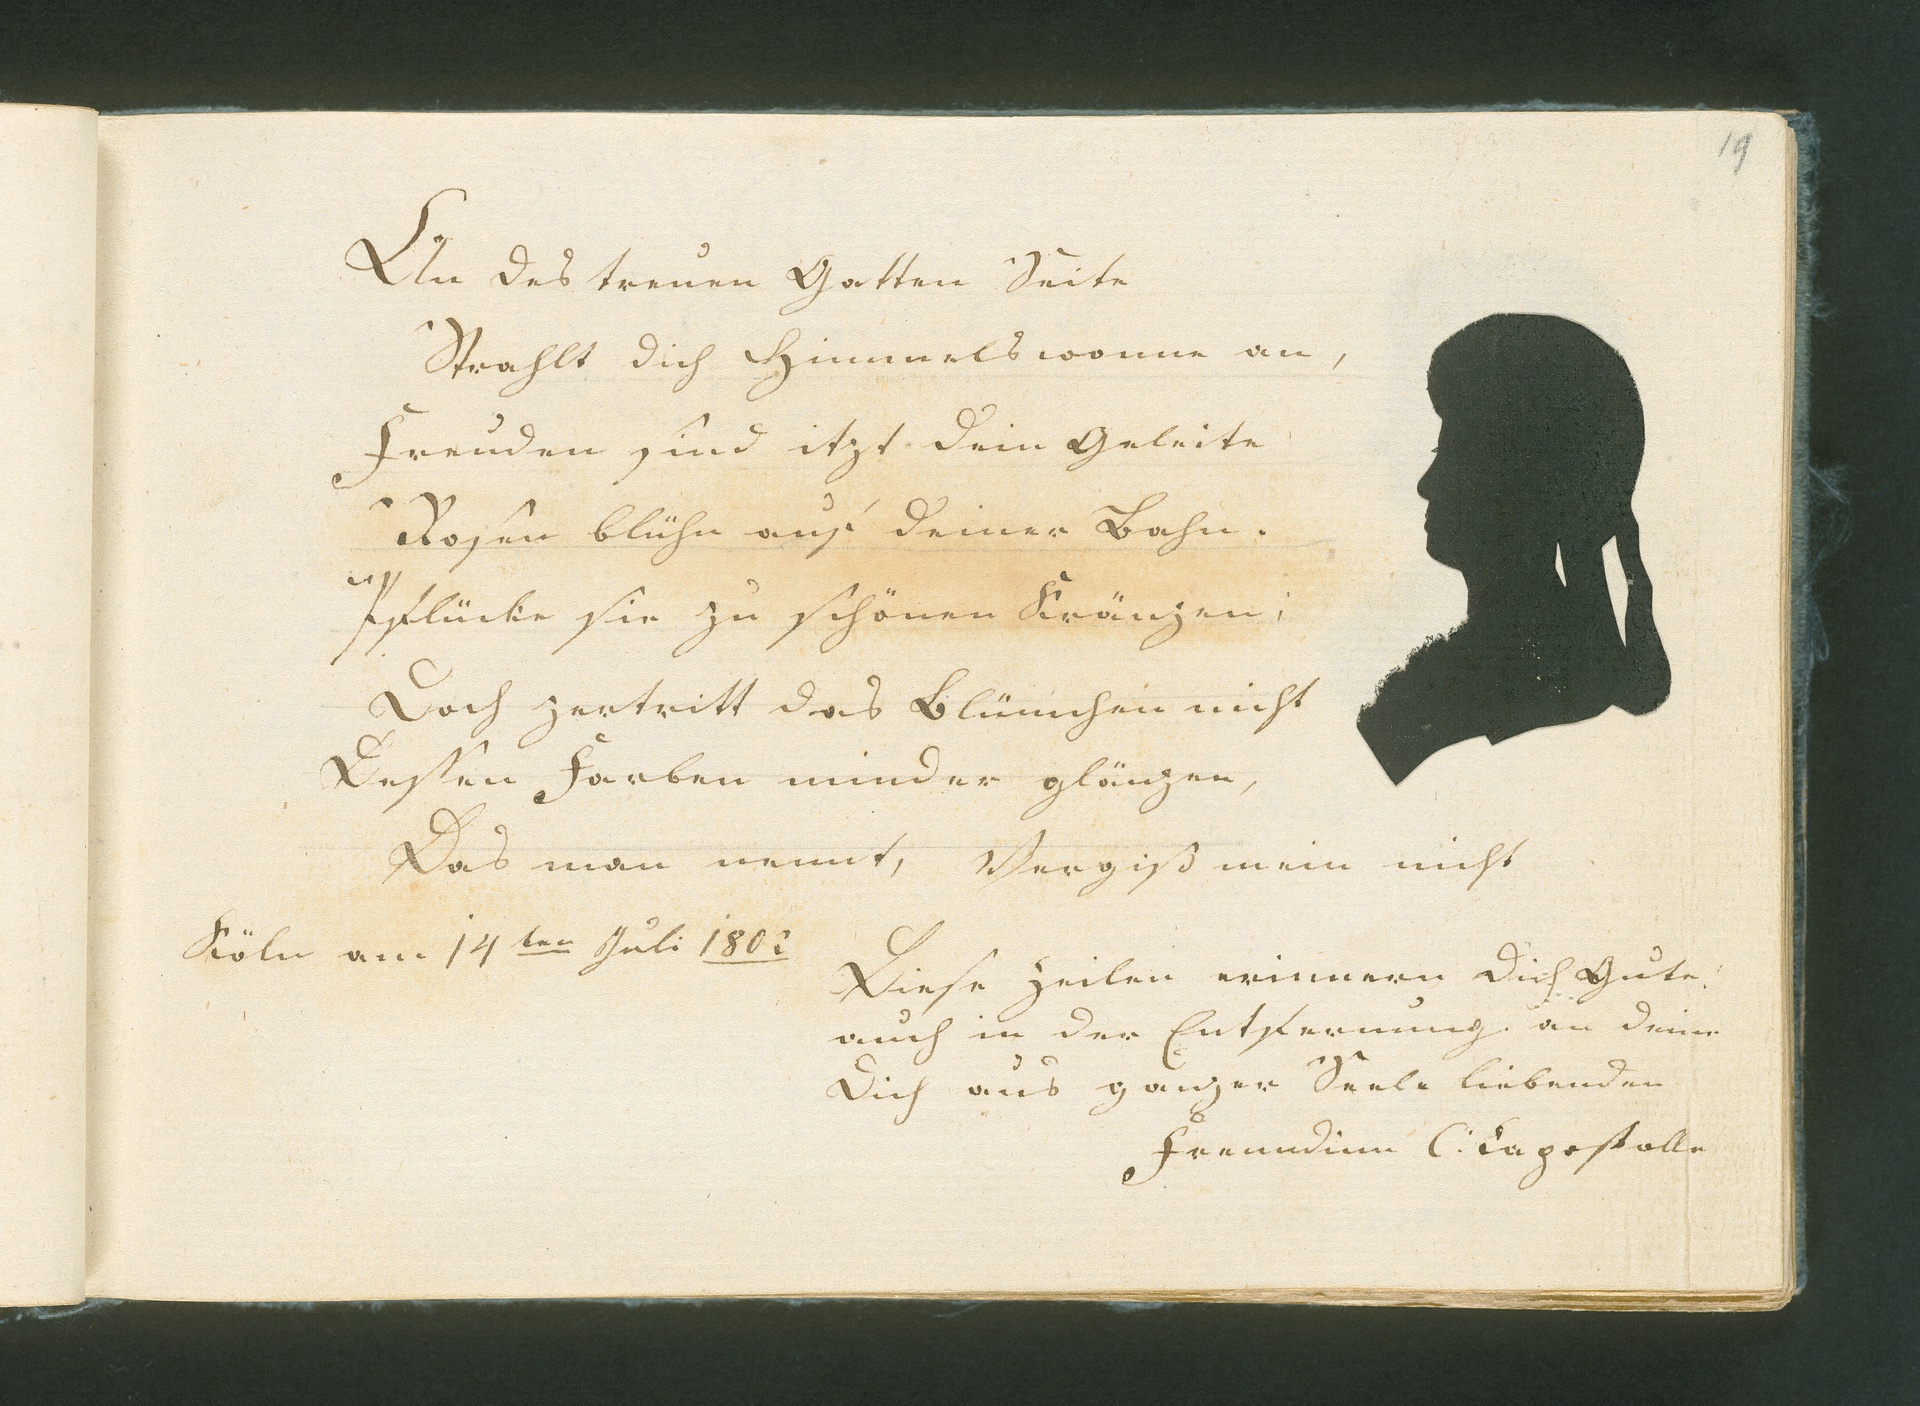 19
An des treuen Gatten Seite
Strahlt dich Himmelswonne an,
Freuden sind itzt dein Geleite
Rosen blühn auf deiner Bahn.
Pflücke sie zu schönen Kränzen;
Doch zertritt das Blümchen nicht
Dessen Farben minder glänzen,
Das man nennt, Vergiß mein nicht
Köln am 14ten Juli
Diese Zeilen erinnern Dich Gute!
auch in der Entfernung an deine
Dich aus ganzer Seele liebenden
Freundinn C.